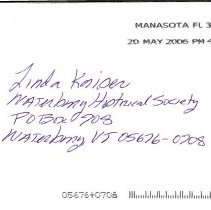 MANASOTA FL 3
20 MAY 2006 PM 4
Linda Kaiser
Waterbury Historical Society
PO Box 708
Waterbury VT 05676-0708
05676+0708